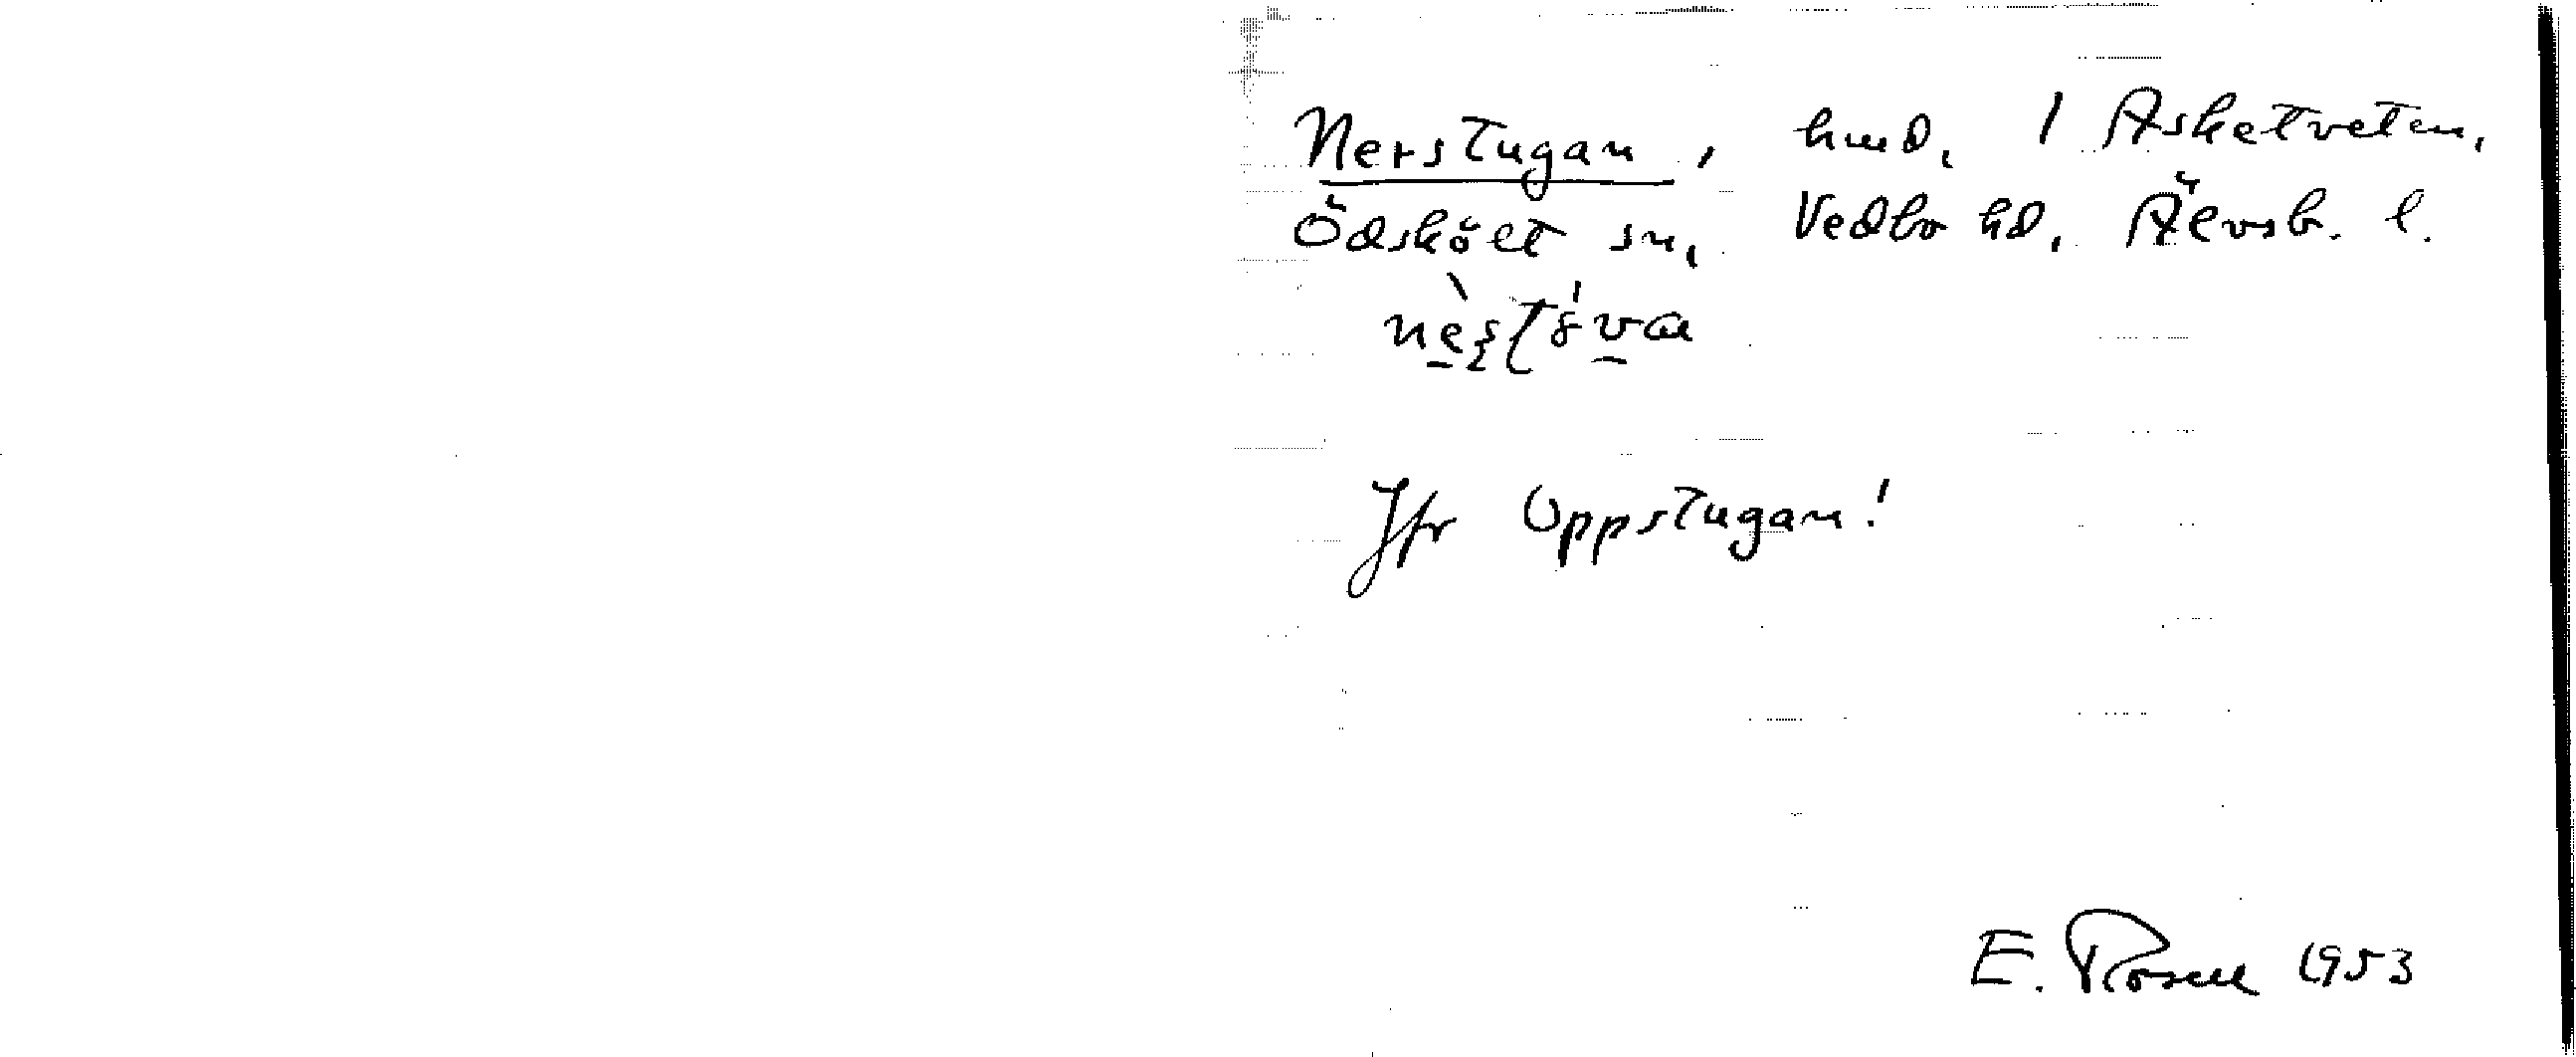 Nerstugan, hmd, 1 Asketveten,
Ödskölt sn, Vedbo hd, Älvsb. l.
Jfr Uppstugan!
E. Rosell 1953